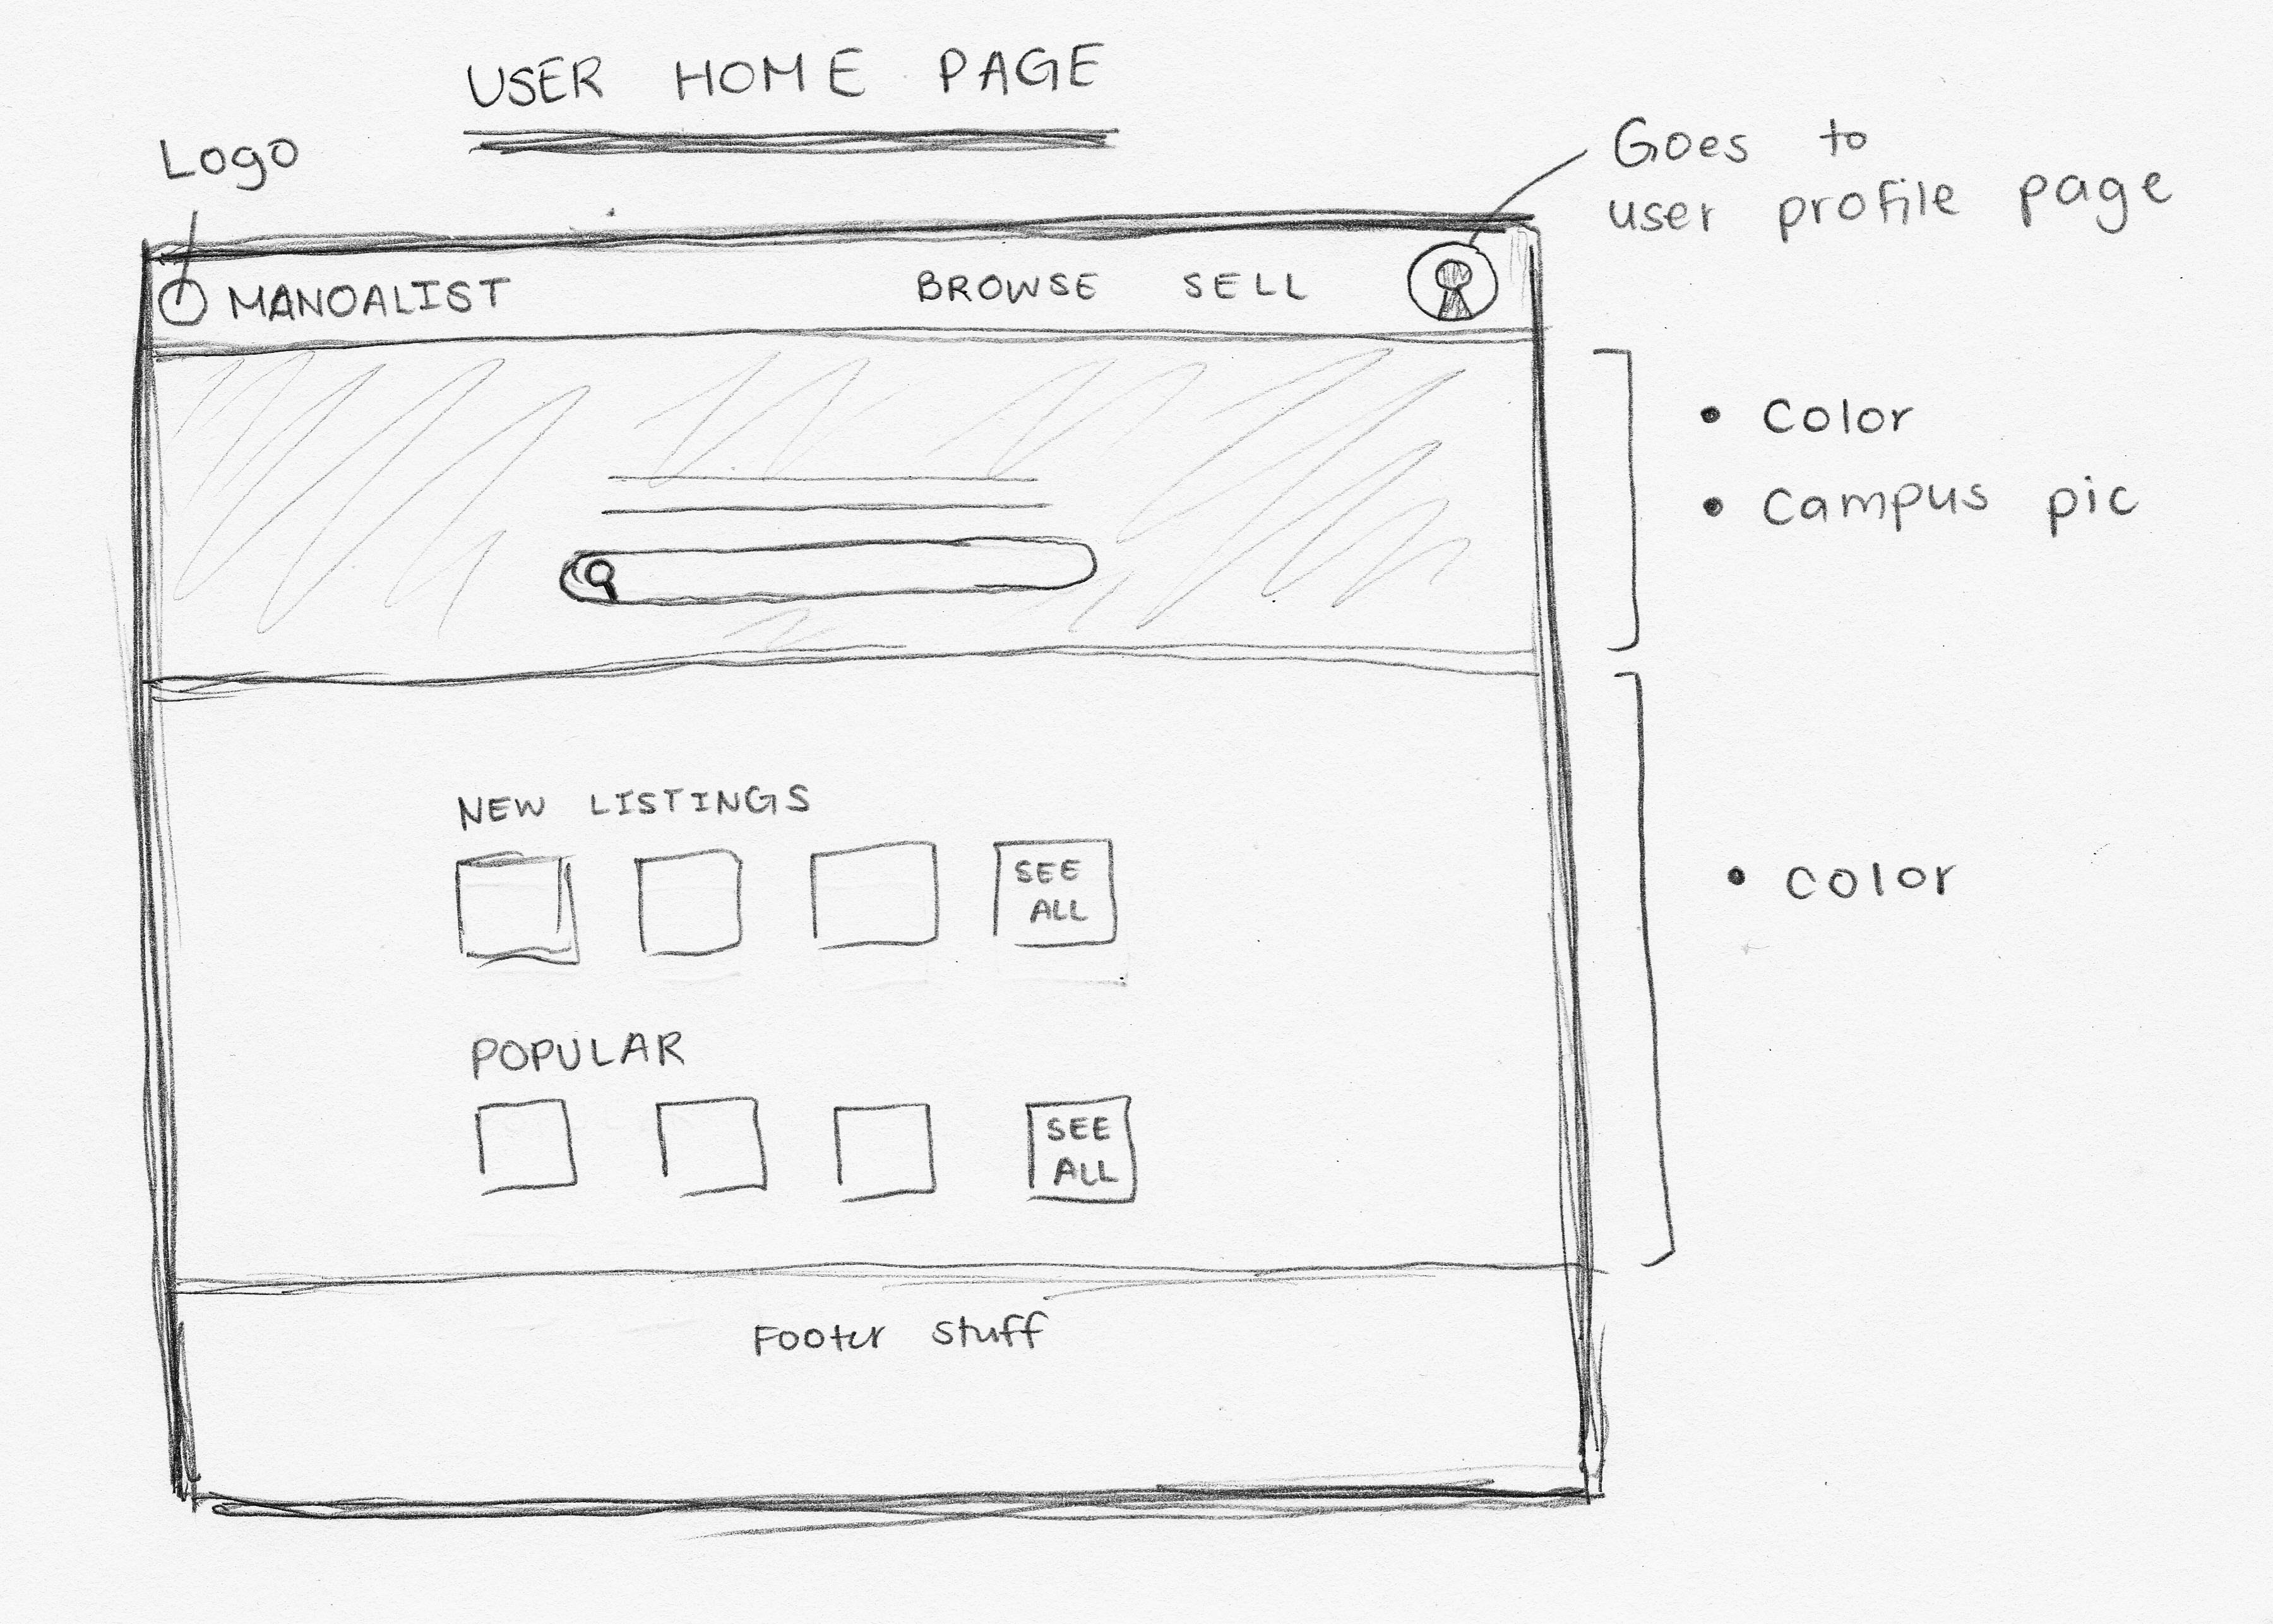 USER HOME PAGE
Logo
Goes to
user profile page
MANOALIST
BROWSE SELL
• Color
• Campus pic
NEW LISTINGS
SEE
ALL
• Color
POPULAR
SEE
ALL
Footer stuff